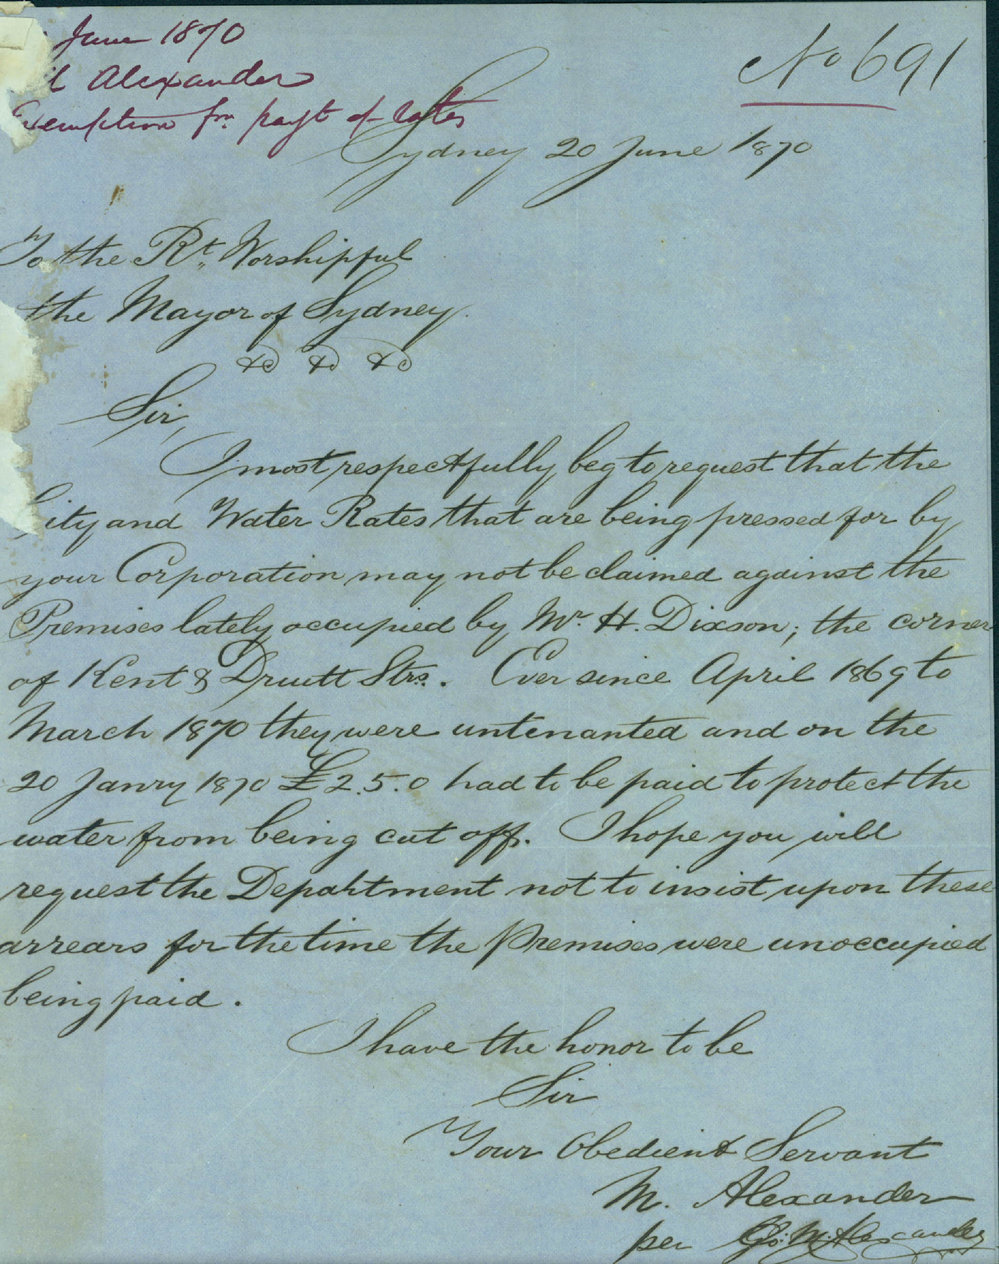 June 1870
Alexander
Exemption fm payt of rates
No 691
Sydney 20 June 1870
To the Rt. Worshipful
the Mayor of Sydney.
&c &c &c
Sir,
I most respectfully beg to request that the
City and Water Rates that are being pressed for by
your Corporation may not be claimed against the
Premises lately occupied by Mr. H. Dixson; the corner
of Kent & Druitt Strs. Ever since April 1869 to
March 1870 they were untenanted and on the
20 Janry 1870 £2.5.0 had to be paid to protect the
water from being cut off. I hope you will
request the Department not to insist upon these
arrears for the time the Premises were unoccupied
being paid.
I have the honor to be
Sir
Your Obedient Servant
M. Alexander
per Geo: M. Alexander